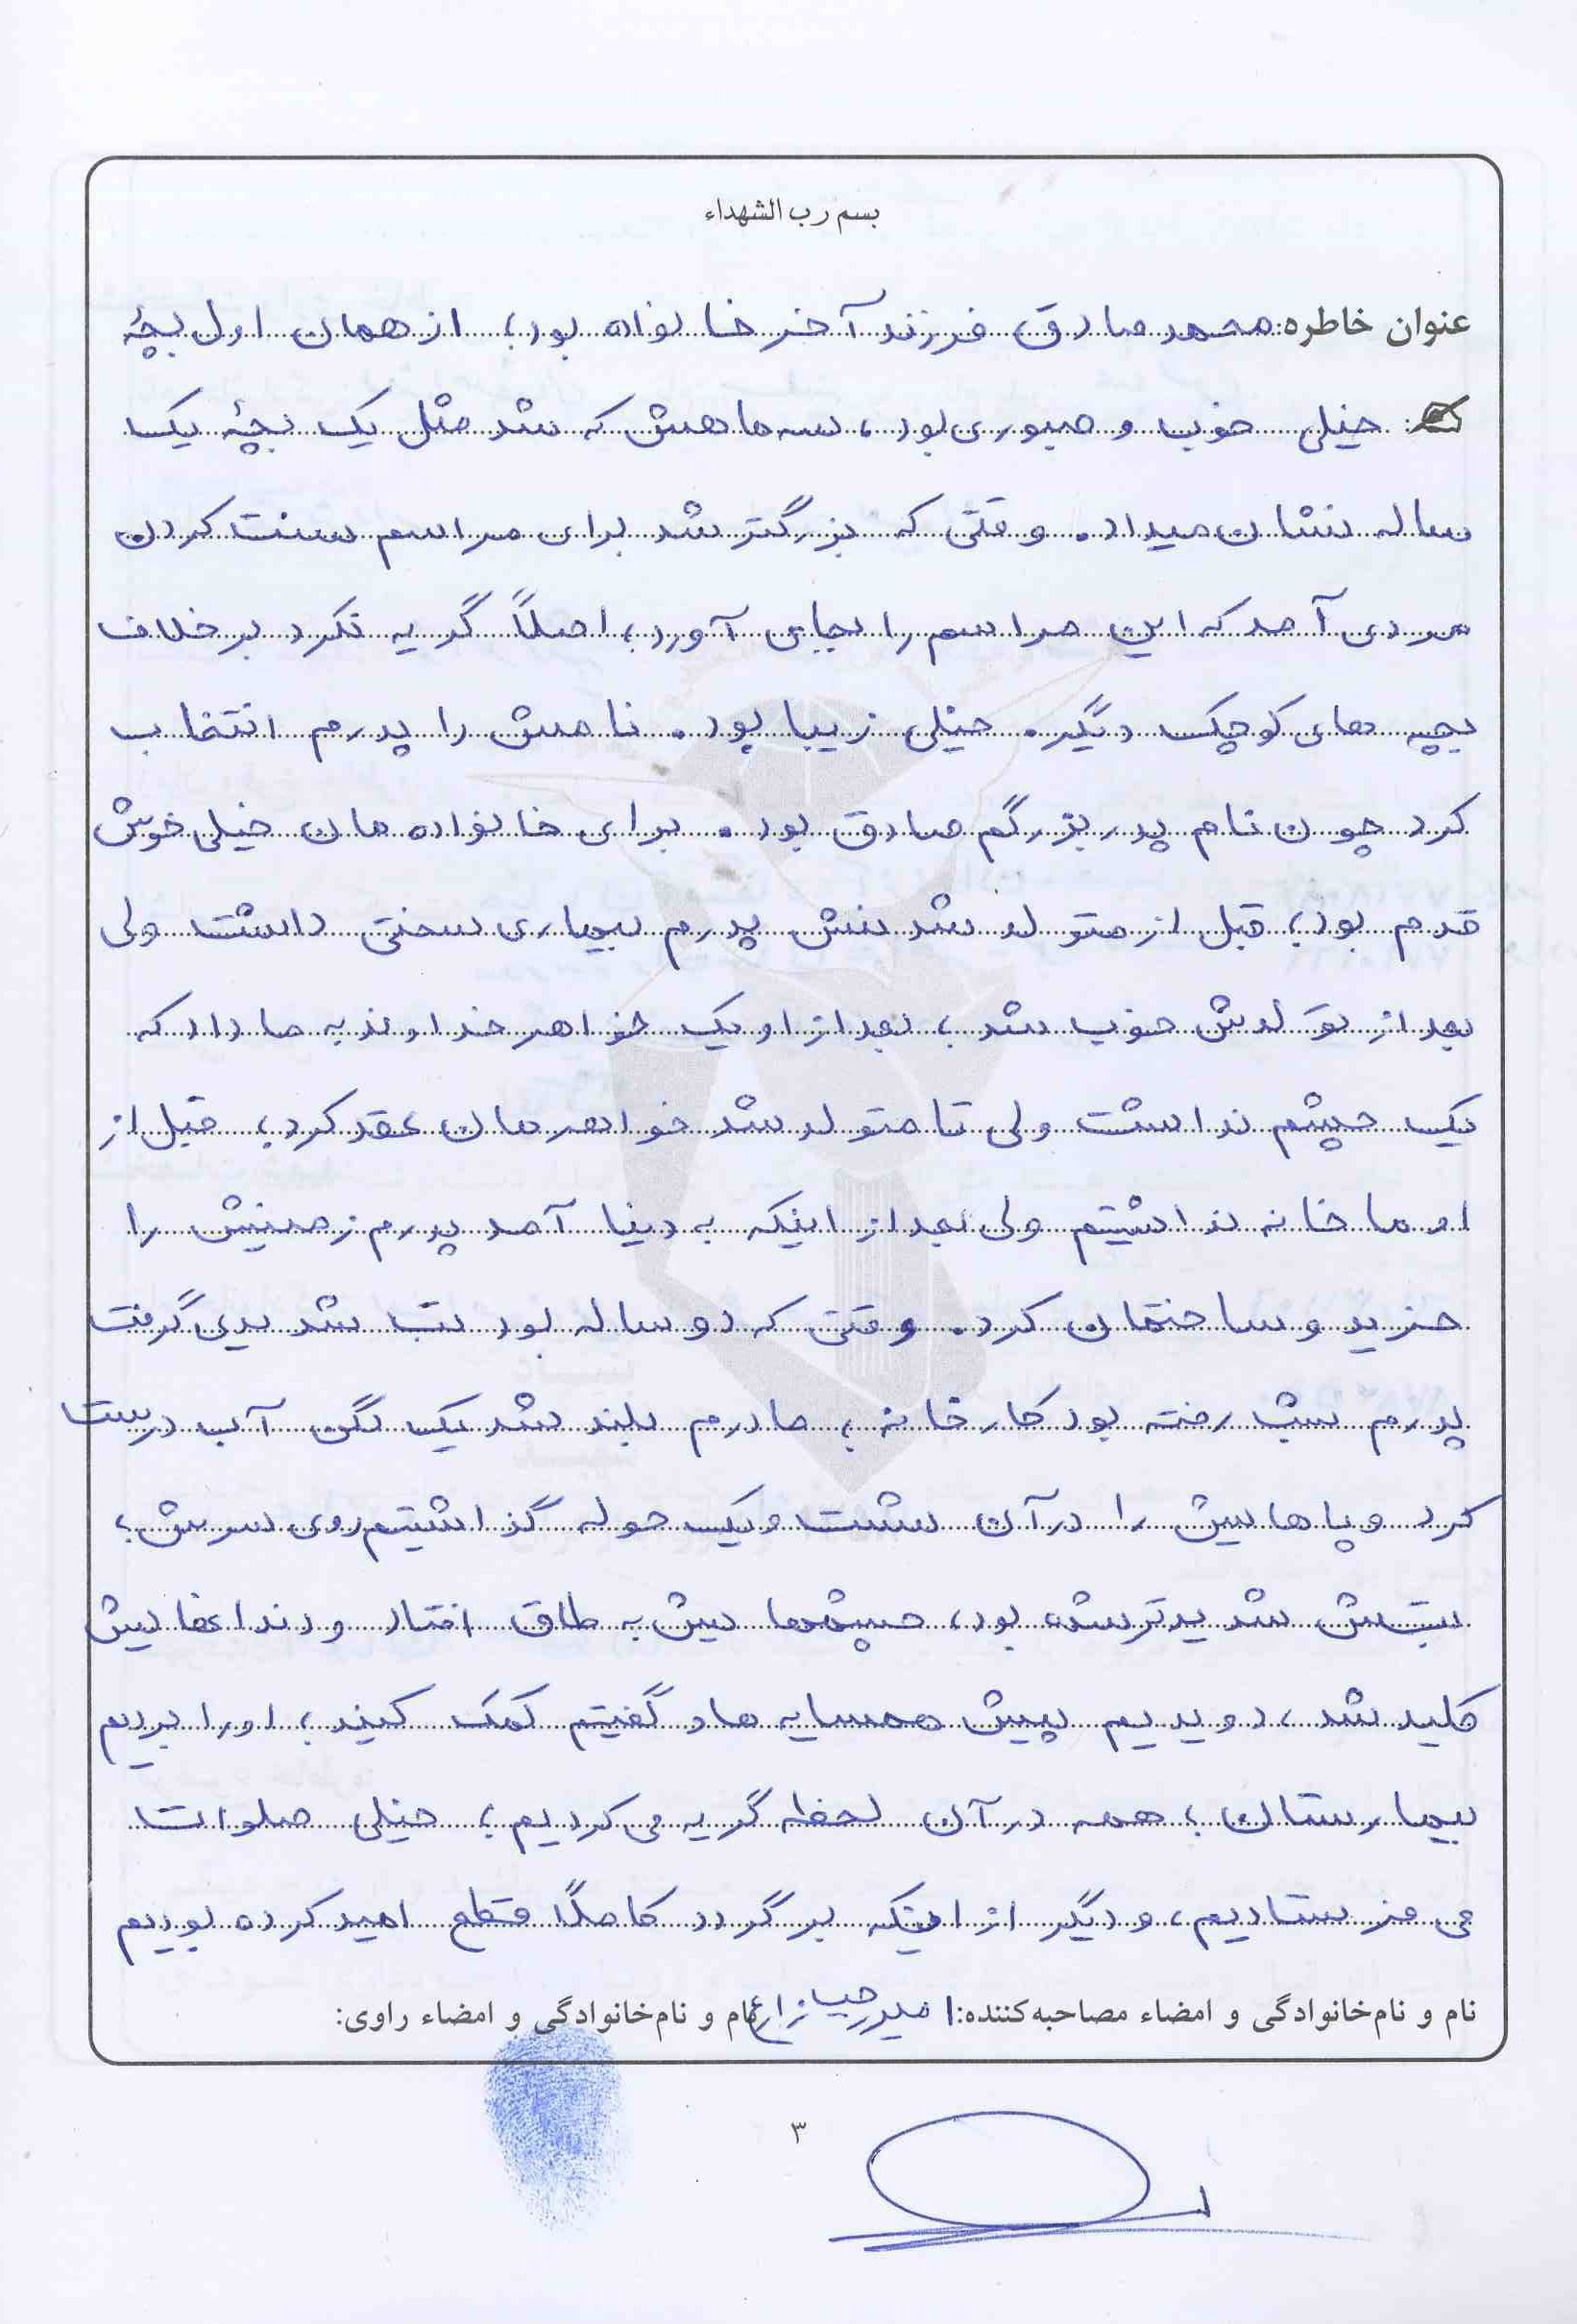 بسم رب الشهداء
عنوان خاطره: محمد صادق فرزند آخر خانواده بود، از همان اول بچۀ
خیلی خوب و صبوری بود، سه ماهش که شد مثل یک بچۀ یک
ساله نشان میداد. وقتی که بزرگتر شد برای مراسم سنت کردن
مردی آمد که این مراسم را بجای آورد، اصلاً گریه نکرد برخلاف
بچه های کوچک دیگر. خیلی زیبا بود. نامش را پدرم انتخاب
کرد چون نام پدربزرگم صادق بود. برای خانواده مان خیلی خوش
قدم بود؛ قبل از متولد شدنش پدرم بیماری سختی داشت ولی
بعد از تولدش خوب شد، بعد از او یک خواهر خداوند به ما داد که
یک چشم نداشت ولی تا متولد شد خواهرمان عقد کرد، قبل از
او ما خانه نداشتیم ولی بعد از اینکه به دنیا آمد پدرم زمینش را
خرید و ساختمان کرد. وقتی که دو ساله بود تب شدیدی گرفت
پدرم شب رفته بود کارخانه، مادرم بلند شد یک لگن آب درست
کرد و پاهایش را در آن شست و یک حوله گذاشتیم روی سرش،
تبش شدیدتر شده بود، چشمهایش به طاق افتاد و دندانهایش
کلید شد، دویدیم پیش همسایه ها و گفتیم کمک کنید، او را بردیم
بیمارستان، همه در آن لحظه گریه می کردیم، خیلی صلوات
می فرستادیم، و دیگر از اینکه برگردد کاملاً قطع امید کرده بودیم
نام و نام‌خانوادگی و امضاء مصاحبه‌کننده: نام و نام‌خانوادگی و امضاء راوی:
۳